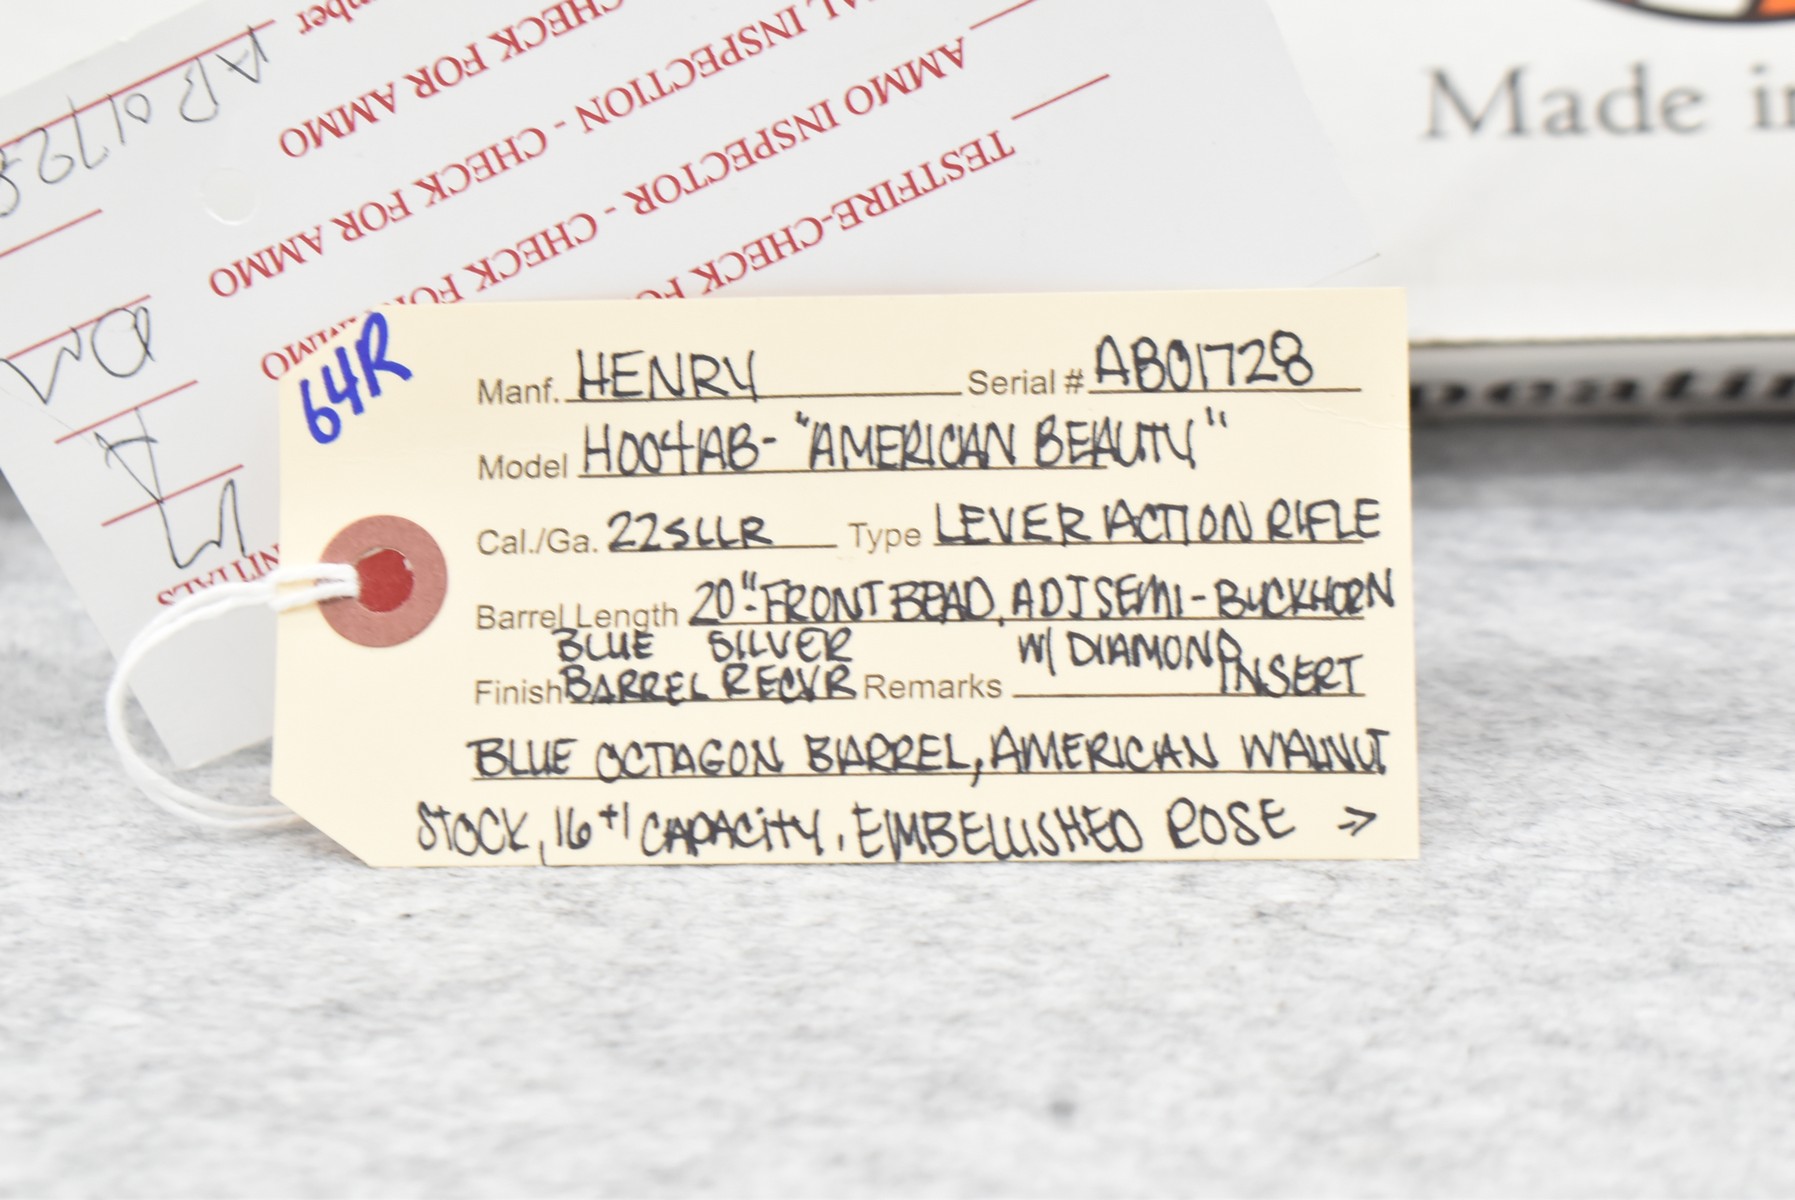 64R
Manf. HENRY Serial # AB01728
Model H004AB- "AMERICAN BEAUTY"
Cal./Ga. 22SLLR Type LEVER ACTION RIFLE
Barrel Length 20"-FRONT BEAD, ADJ SEMI-BUCKHORN
BLUE SILVER W/ DIAMOND
Finish BARREL RECVR Remarks INSERT
BLUE OCTAGON BARREL, AMERICAN WALNUT
STOCK, 16+1 CAPACITY, EMBELLISHED ROSE >>
TESTFIRE-CHECK
AMMO INSPECTOR - CHECK FOR
INSPECTION - CHECK FOR AMMO
CHECK FOR AMMO
AB01728
Made in